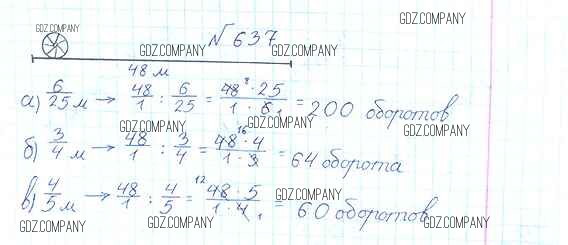 GDZ.COMPANY
GDZ.COMPANY
№ 637
GDZ.COMPANY GDZ.COMPANY
48 м
а) 6/25 м → 48/1 : 6/25 = 48 · 25 / 1 · 6 = 200 оборотов
GDZ.COMPANY GDZ.COMPANY
б) 3/4 м → 48/1 : 3/4 = 48 · 4 / 1 · 3 = 64 оборота
GDZ.COMPANY GDZ.COMPANY
в) 4/5 м → 48/1 : 4/5 = 48 · 5 / 1 · 4 = 60 оборотов
GDZ.COMPANY GDZ.COMPANY GDZ.COMPANY GDZ.COMPANY